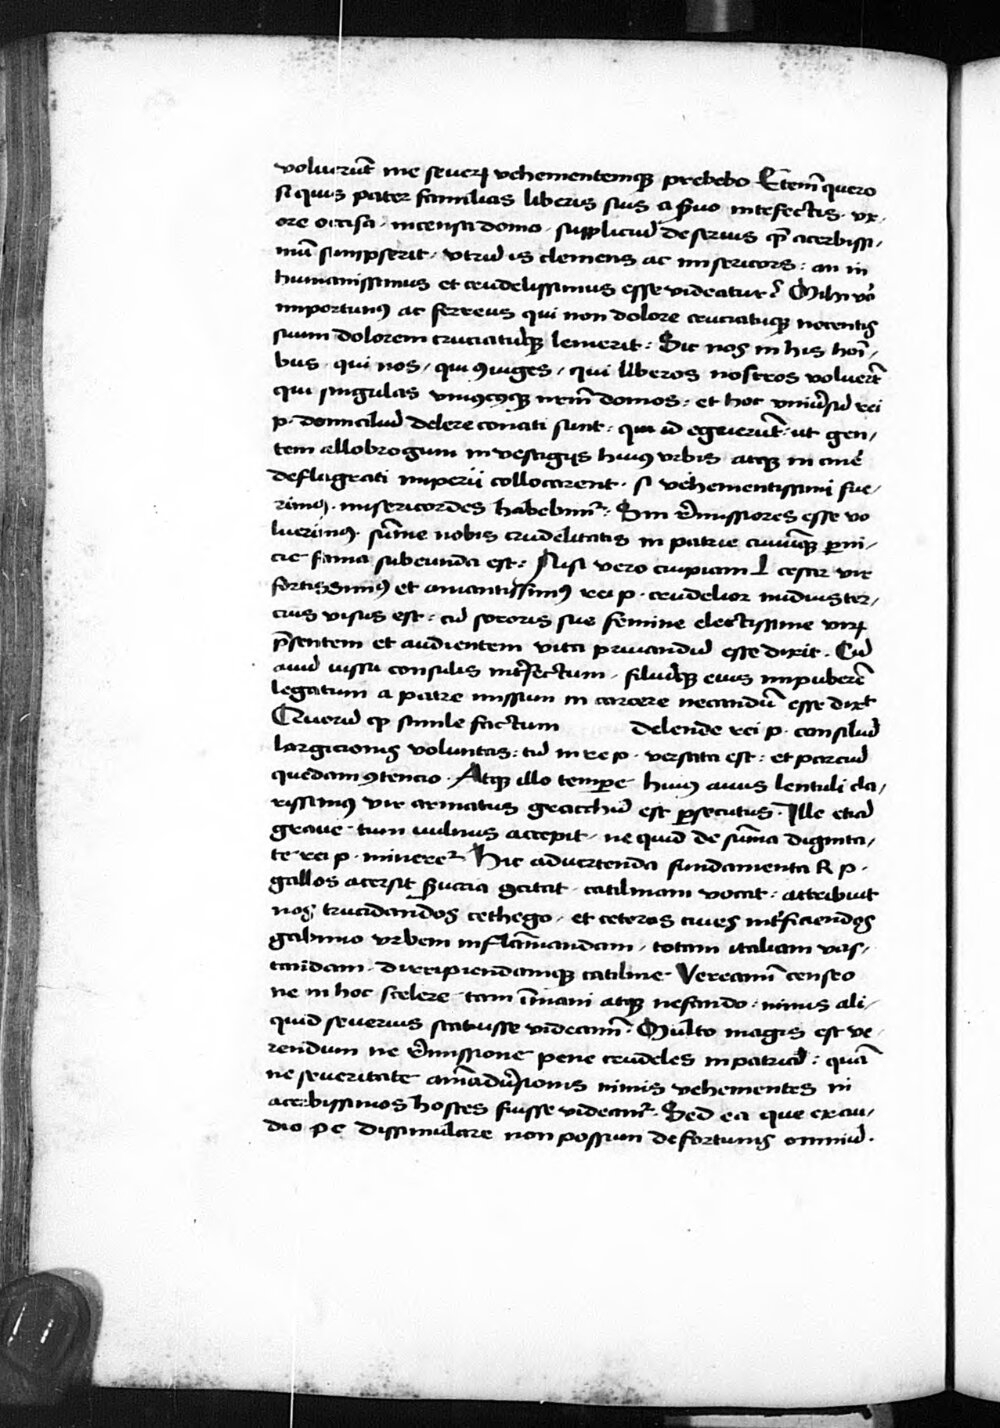 voluerūt me seuerꝝ vehementemqꝫ prebebo Etem̄ quero
si quis pater familias liberis suis a ẜuo intefectis · vx-
ore occisa · incensa domo · suppliciū de seruis qͣ acerbissi-
mū sumpserit · vtrū is clemens ac misericors : an in
humanissimus et crudelissimus esse videatur ? Mihi v̄o
importunꝰ ac ferreus qui non dolore cruciatuqꝫ nocentis
suum dolorem cruciatūqꝫ lenierit : Sic nos in his hoī-
bus · qui nos / qui ꝯiuges / qui liberos nostros voluerūt
qui singulas vniꝰcꝰqꝫ nr̄m domos : et hoc vniūsū rei
p · domiciliū delere conati sunt : qui id egerūt · ut gen-
tem allobrogum in vestigijs huiꝰ vrbis atqꝫ in cine
deflagrati imperii collocarent · si vehementissimi fue-
rimꝰ · misericordes habebimr̄ : Sin r̄missiores esse vo
luerimꝰ · sūme nobis crudelitatis in patrie ciuiumqꝫ ꝑni-
cie fama subeunda est : Nisi vero cuipiam L cesar vir
fortissimꝰ et amantissimꝰ rei p · crudelior nudiuster-
cius visus est : cū sororis sue femine electissime virꝝ
p̄sentem et audientem vita priuandū esse dixit · Cū
auū iussu consulis int̄fectum · filiūqꝫ eius impuberē
legatum a patre missum in carcere necandū esse dixit
Quorū qͣ simile factum delende rei p · consiliū
largicionis voluntas : tū in re p · versata est : et parciū
quedam ꝯtencio · Atqꝫ illo tempore huiꝰ auus lentuli cla-
rissimꝰ vir armatus gracchū est ꝑsecutus · Ille etiā
graue tum vulnus accepit · ne quid de sūma dignita-
te rei p · minueret̄ Hic aduertenda fundamenta R p ·
gallos acersit ẜuicia ꝯcitat · catilinam vocat : attribuit
nos trucidandos cethego · et ceteros ciues int̄ficiendos
gabinio vrbem inflam̄andam · totam italiam vas-
tandam · diripiendamqꝫ catiline · Vereamī censeo
ne in hoc scelere tam īmani atqꝫ nefando : nimis ali-
quid seuerius statuisse videamī · Multo magis est ve-
rendum ne r̄missione pene crudeles in patriā : quā
ne seueritate am̄adūsionis nimis vehementes in
acerbissimos hostes fuisse videamr̄ · Sed ea que exau-
dio p c dissimulare non possum de fortunis omniū ·